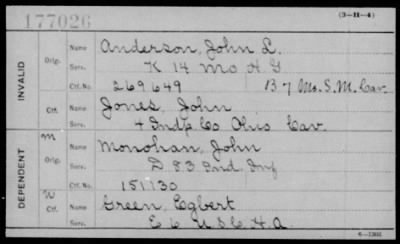 177026
(3—11—4)
INVALID
Orig. Name Anderson, John L.
Serv. K 14 Mo H G
Ctf. No. 269649 B 7 Mo. S. M. Cav.
Ctf. Name Jones, John
Serv. 4 Indp Co Ohio Cav.
DEPENDENT
M
Orig. Name Monohan, John
Serv. D 83 Ind Inf
Ctf. No. 151730
W
Ctf. Name Green, Egbert
Serv. E 6 U S C H A